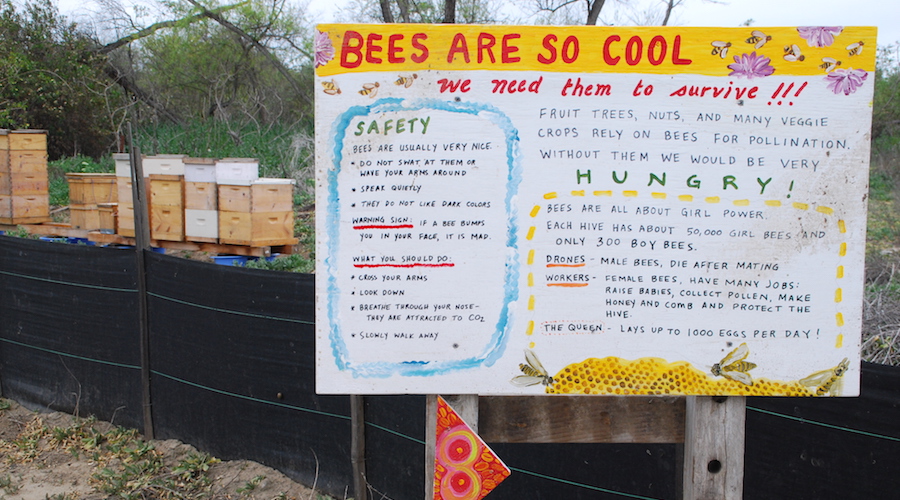 BEES ARE SO COOL
we need them to survive!!!
SAFETY
BEES ARE USUALLY VERY NICE.
• DO NOT SWAT AT THEM OR
WAVE YOUR ARMS AROUND
• SPEAK QUIETLY
• THEY DO NOT LIKE DARK COLORS
WARNING SIGN: IF A BEE BUMPS
YOU IN YOUR FACE, IT IS MAD.
WHAT YOU SHOULD DO:
• CROSS YOUR ARMS
• LOOK DOWN
• BREATHE THROUGH YOUR NOSE-
THEY ARE ATTRACTED TO CO2
• SLOWLY WALK AWAY
FRUIT TREES, NUTS, AND MANY VEGGIE
CROPS RELY ON BEES FOR POLLINATION.
WITHOUT THEM WE WOULD BE VERY
HUNGRY!
BEES ARE ALL ABOUT GIRL POWER.
EACH HIVE HAS ABOUT 50,000 GIRL BEES AND
ONLY 300 BOY BEES.
DRONES - MALE BEES, DIE AFTER MATING
WORKERS - FEMALE BEES, HAVE MANY JOBS:
RAISE BABIES, COLLECT POLLEN, MAKE
HONEY AND COMB AND PROTECT THE
HIVE.
THE QUEEN - LAYS UP TO 1000 EGGS PER DAY!